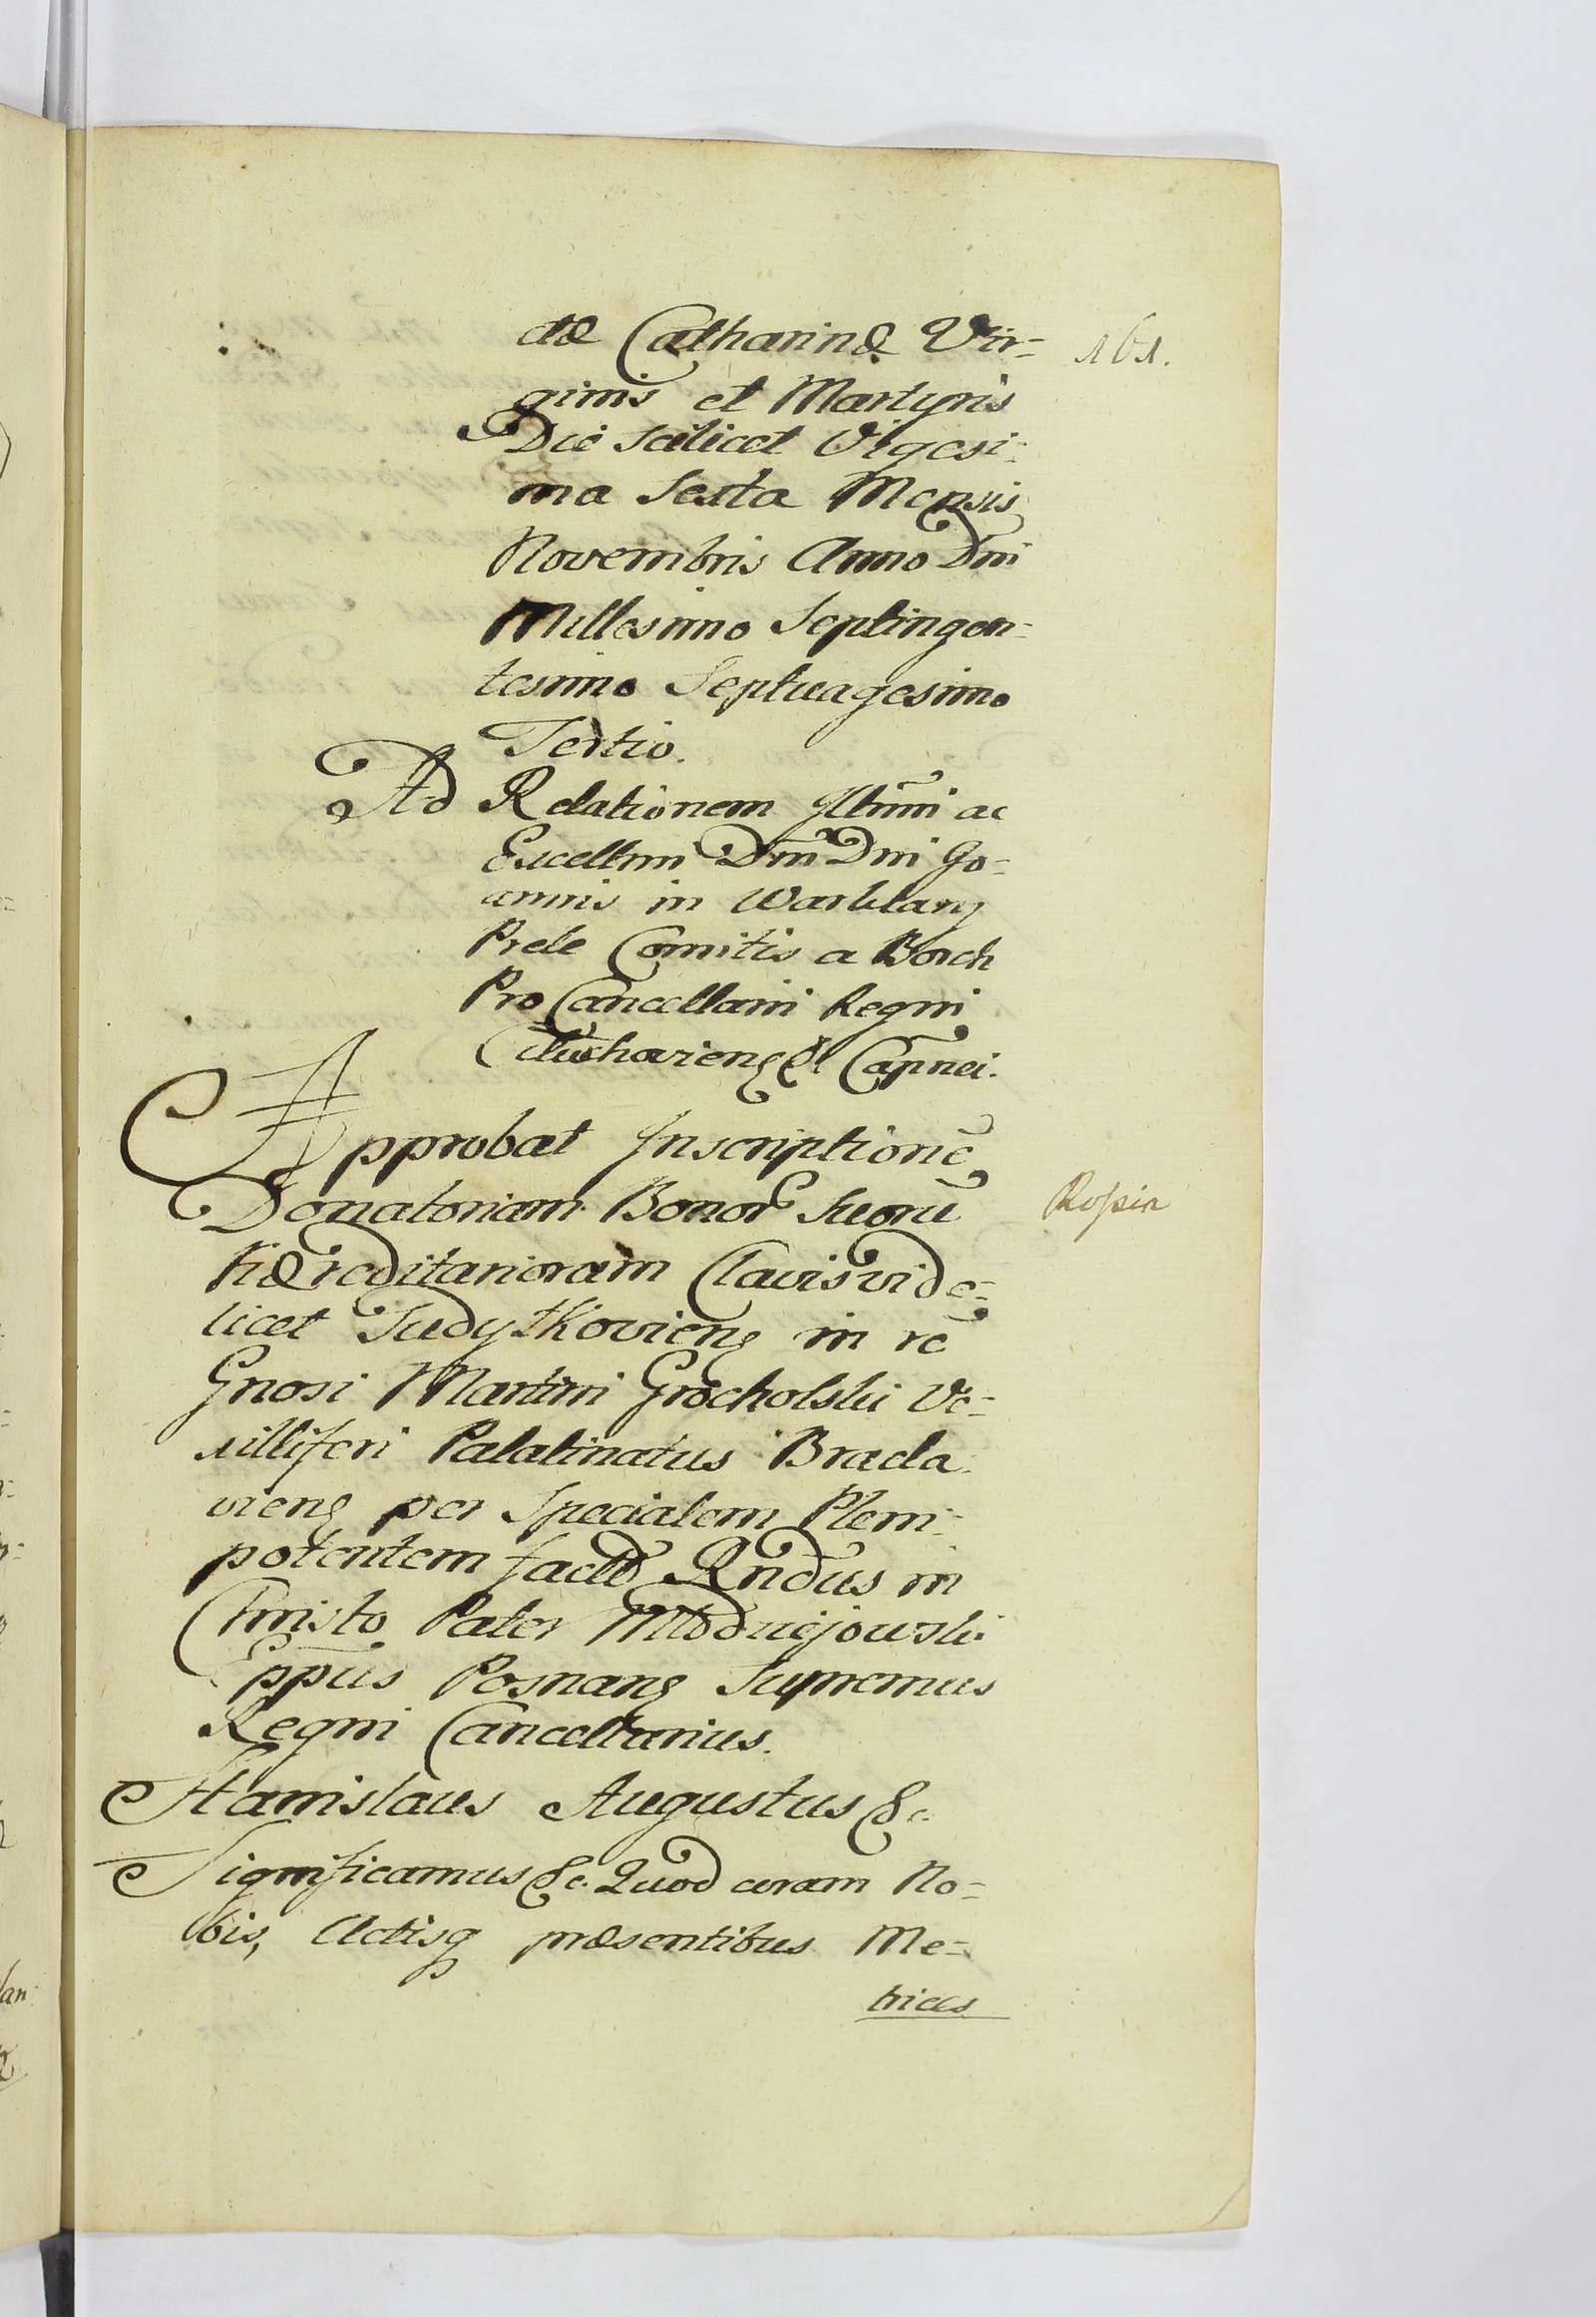 ctæ Catharinæ Vir=
161.
ginis et Martyris
Die scilicet Vigesi=
ma Sexta Mensis
Novembris Anno Dni
Millesimo Septingen=
tesimo Septuagesimo
Tertio.
Ad Relationem Illmi ac
Excellmi Dni Dni Jo=
annis in Warklany
Prele Comitis a Borch
Pro Cancellarii Regni
&c Capnei.
Approbat Inscriptionē
Donatoriam Bonor Suorū
Ropsin
Hæreditariorum Clavis vide=
licet Sudyłkovieng in rē
Gnosi Martini Grocholski Ve=
xilliferi Palatinatus Bracla=
vieng per Specialem Pleni=
potentem factā Rndus in
Christo Pater Młodziejowski
Eppus Posnang Supremus
Regni Cancellarius.
Stanislaus Augustus &c.
Significamus &c. Quod coram No=
bis, Actisq præsentibus Me=
trices